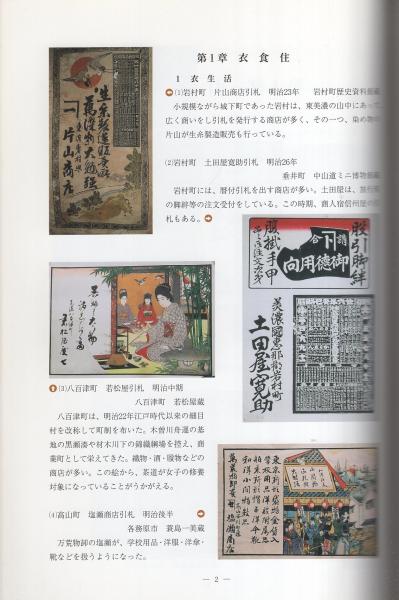 第1章 衣食住
1 衣生活
(1)岩村町 片山商店引札 明治23年 岩村町歴史資料館蔵
小規模ながら城下町であった岩村は、東美濃の山中にあって
広く商いをし引札を発行する商店が多く、その一つ、染め物の
片山が生糸製造販売も行っている。
生糸製造販売所
萬染物大勉強
片山商店
(2)岩村町 土田屋寛助引札 明治26年
垂井町 中山道ミニ博物館
岩村町には、暦付引札を出す商店が多い。土田屋は、旅行用
の脚絆等の注文受付をしている。この時期、商人宿信州屋の
札もある。
股引脚絆
請合
御徳用向
腹掛手甲
美濃國恵那郡岩村町
土田屋寛助
(3)八百津町 若松屋引札 明治中期
八百津町 若松屋蔵
八百津町は、明治22年江戸時代以来の細目
村を改称して町制を布いた。木曽川舟運の基
地の黒瀬湊や材木川下の錦織綱場を控え、商
業町として栄えてきた。織物・酒・醤油などの
商店が多い。この絵から、茶道が女子の修養
対象になっていることがうかがえる。
(4)高山町 塩瀬商店引札 明治後半
各務原市 蓑島一美蔵
万荒物卸の塩瀬が、学校用品・洋服・洋傘・
靴などを扱うようになった。
— 2 —